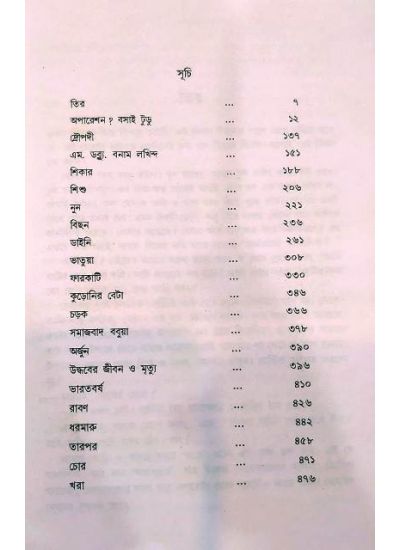 সূচি
তির ... ৭
অপারেশন ? বসাই টুডু ... ১২
দ্রৌপদী ... ১৩৭
এম. ডব্লু. বনাম লখিন্দ ... ১৫১
শিকার ... ১৮৮
শিশু ... ২০৬
নুন ... ২২১
বিছন ... ২৩৬
ডাইনি ... ২৬১
ভাতুয়া ... ৩০৮
ফারকাটি ... ৩৩০
কুড়োনির বেটা ... ৩৪৬
চড়ক ... ৩৬৬
সমাজবাদ ববুয়া ... ৩৭৮
অর্জুন ... ৩৯০
উদ্ধবের জীবন ও মৃত্যু ... ৩৯৬
ভারতবর্ষ ... ৪১০
রাবণ ... ৪২৬
ধরমারু ... ৪৪২
তারপর ... ৪৫৮
চোর ... ৪৭১
খরা ... ৪৭৬